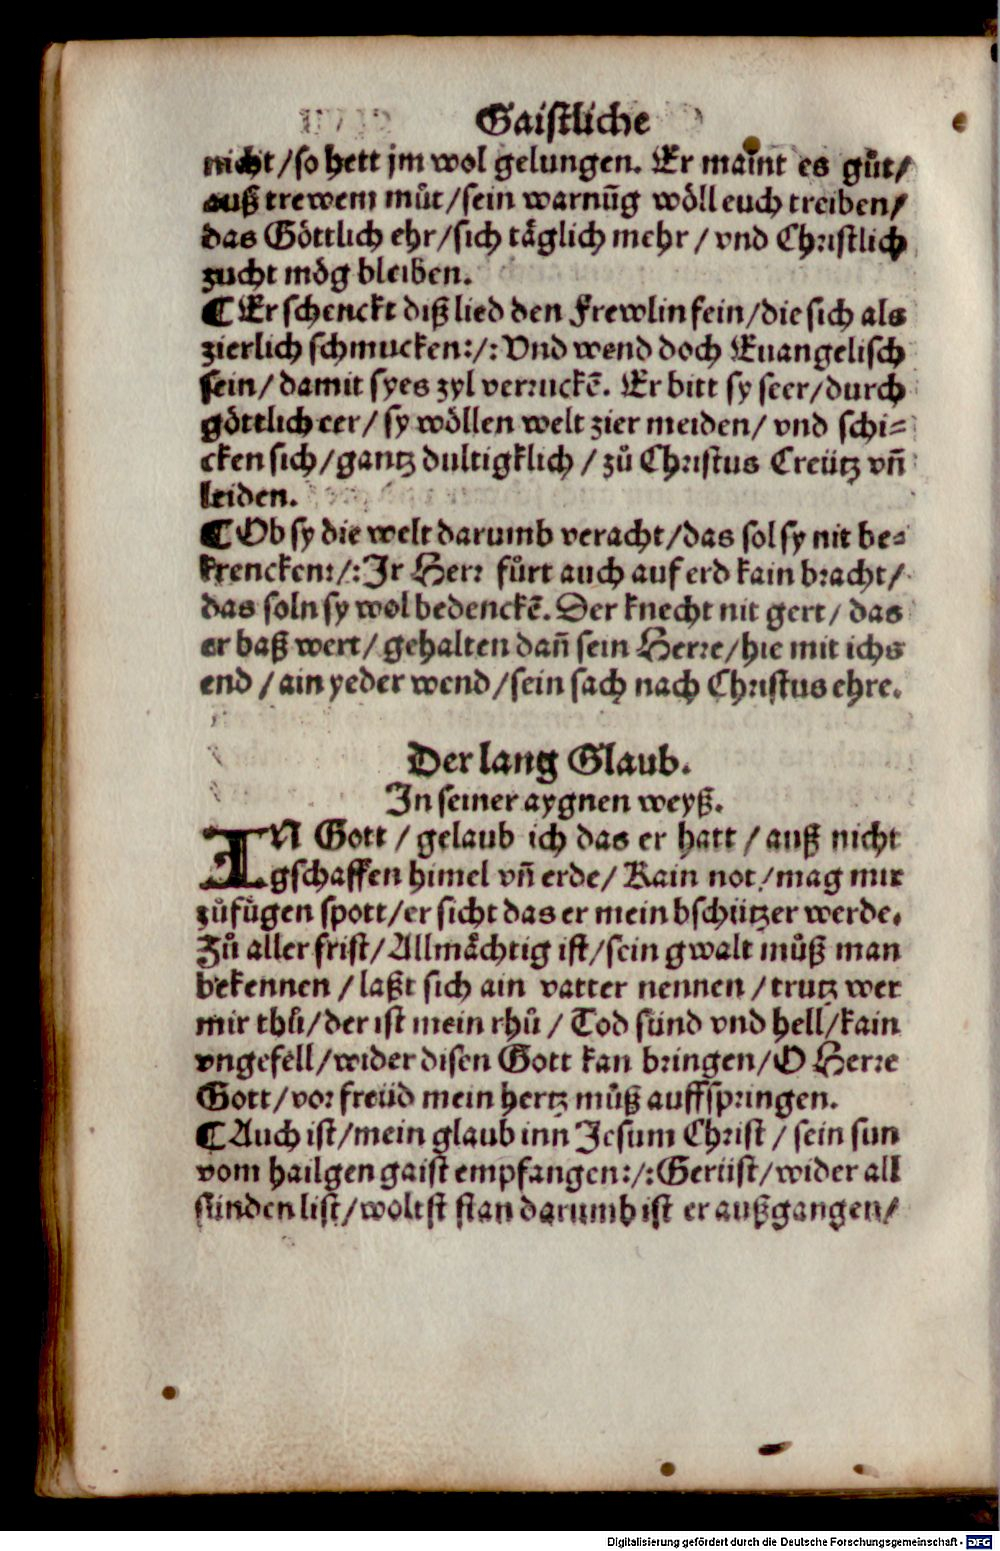 Gaistliche
nicht/so hett jm wol gelungen. Er maint es gůt/
auß trewem můt/sein warnũg wöll euch treiben/
das Göttlich ehr/sich täglich mehr/vnd Christlich
zucht mög bleiben.
¶Er schenckt diß lied den Frewlin fein/die sich als
zierlich schmucken:/:Vnd wend doch Euangelisch
sein/damit syes zyl verruckẽ. Er bitt sy seer/durch
göttlich eer/sy wöllen welt zier meiden/vnd schi-
cken sich/gantz dultigklich/zů Christus Creütz vñ
leiden.
¶Ob sy die welt darumb veracht/das sol sy nit be-
krencken:/:Jr Herr fůrt auch auf erd kain bracht/
das soln sy wol bedenckẽ. Der knecht nit gert/das
er baß wert/gehalten dañ sein Herre/hie mit ichs
end/ain yeder wend/sein sach nach Christus ehre.
Der lang Glaub.
In seiner aygnen weyß.
IN Gott/gelaub ich das er hatt/auß nicht
gschaffen himel vñ erde/Kain not/mag mir
zůfůgen spott/er sicht das er mein bschützer werde.
Zů aller frist/Allmächtig ist/sein gwalt můß man
bekennen/laßt sich ain vatter nennen/trutz wer
mir thů/der ist mein rhů/Tod sünd vnd hell/kain
vngefell/wider disen Gott kan bringen/O Herre
Gott/vor freüd mein hertz můß auffspringen.
¶Auch ist/mein glaub inn Jesum Christ/sein sun
vom hailgen gaist empfangen:/:Gerüst/wider all
sünden list/woltst stan darumb ist er außgangen/
Digitalisierung gefördert durch die Deutsche Forschungsgemeinschaft - DFG